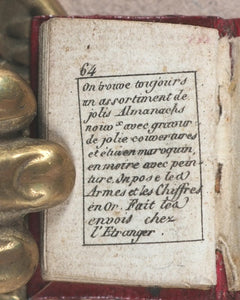 64
On trouve toujours
un assortiment de
jolis Almanachs
nouv.x avec gravur
de jolie couvertures
et étui en maroquin,
en moire avec pein-
ture. On pose led
Armes et les Chiffres
en Or. Fait led
envois chez
l'Etranger.